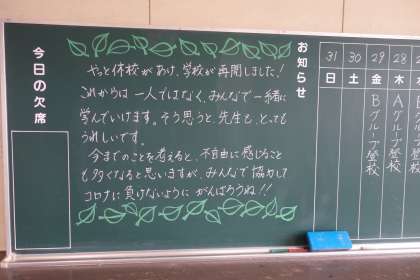 お知らせ
やっと休校があけ、学校が再開しました!
これからは一人ではなく、みんなで一緒に
学んでいけます。そう思うと、先生も、とっても
うれしいです。
今までのことを考えると、不自由に感じること
も多くなると思いますが、みんなで協力して
コロナに負けないようにがんばろうね!!
今日の欠席
31 日
30 土
29 金 Bグループ登校
28 木 Aグループ登校